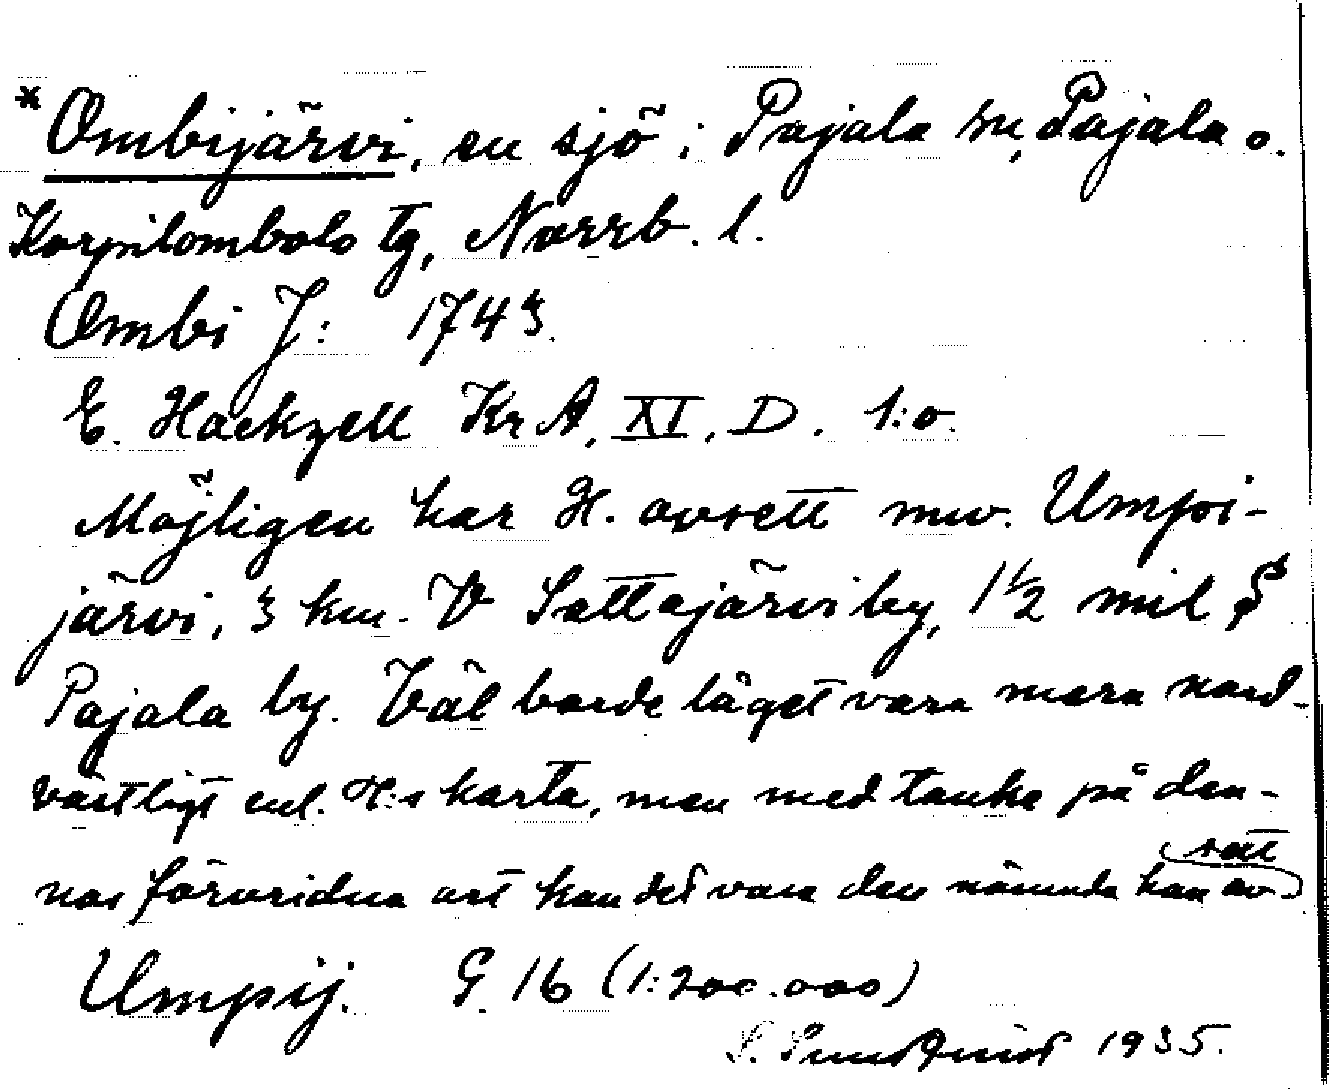 *Ombijärvi, en sjö i Pajala sn, Pajala o.
Korpilombolo tg, Norrb. l.
Ombi J: 1743.
E. Hackzell Kr A, XI, D. 1:o.
Möjligen har H. avsett nuv. Umpi-
järvi, 3 km. V Sattajärvi by, 1 1/2 mil S
Pajala by. Väl borde läget vara mera nord-
västligt enl. H:s karta, men med tanke på den-
nas förvridna art kan det vara den nämnda han av-
sett
Umpij. G. 16 (1:200.000)
S. Sundqvist 1935.